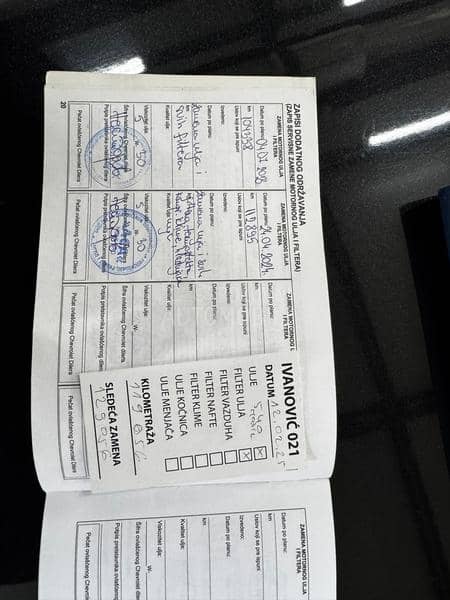 ZAPISI DODATNOG ODRŽAVANJA
(ZAPISI SERVISNE ZAMENE MOTORNOG ULJA I FILTERA)
ZAMENA MOTORNOG ULJA
I FILTERA
Datum po planu:
km 104398
Uslov koji se prvi ispuni
Izvedeno:
Datum po planu:
km
Zamena ulja i
svih filtera
Kvalitet ulja:
Viskozitet ulja:
5 W- 30
Šifra ovlašćenog Chevrolet dilera
Potpis predstavnika ovlašćenog dilera
Pečat ovlašćenog Chevrolet Dilera
20
ZAMENA MOTORNOG ULJA
I FILTERA
Datum po planu: 24.04.2024.
km 112895
Uslov koji se prvi ispuni
Izvedeno:
Datum po planu:
Zamena ulja i svih
km
Kvalitet ulja:
Viskozitet ulja:
5 W- 30
Šifra ovlašćenog Chevrolet dilera
Potpis predstavnika ovlašćenog dilera
Pečat ovlašćenog Chevrolet Dilera
ZAMENA MOTORNOG
I FILTERA
Datum po planu:
km
Uslov koji se prvi ispuni
Izvedeno:
Datum po planu:
km
Kvalitet ulja:
Viskozitet ulja:
W-
Šifra ovlašćenog Chevrolet dilera
Potpis predstavnika ovlašćenog dilera
Pečat ovlašćenog Chevrolet Dilera
IVANOVIĆ 021
DATUM 12.02.25
ULJE 5w30 X
FILTER ULJA X
FILTER VAZDUHA
FILTER NAFTE
FILTER KLIME
ULJE KOČNICA
ULJE MENJAČA
KILOMETRAŽA
119056
SLEDEĆA ZAMENA
129056
Pečat ovlašćenog
ZAMENA MOTORNOG ULJA
I FILTERA
Datum po planu:
km
Uslov koji se prvi ispuni
Izvedeno:
Datum po planu:
km
Kvalitet ulja:
Viskozitet ulja:
W-
Šifra ovlašćenog Chevrolet dilera
Potpis predstavnika ovlašćenog
Pečat ovlašćenog Chevrolet Dilera